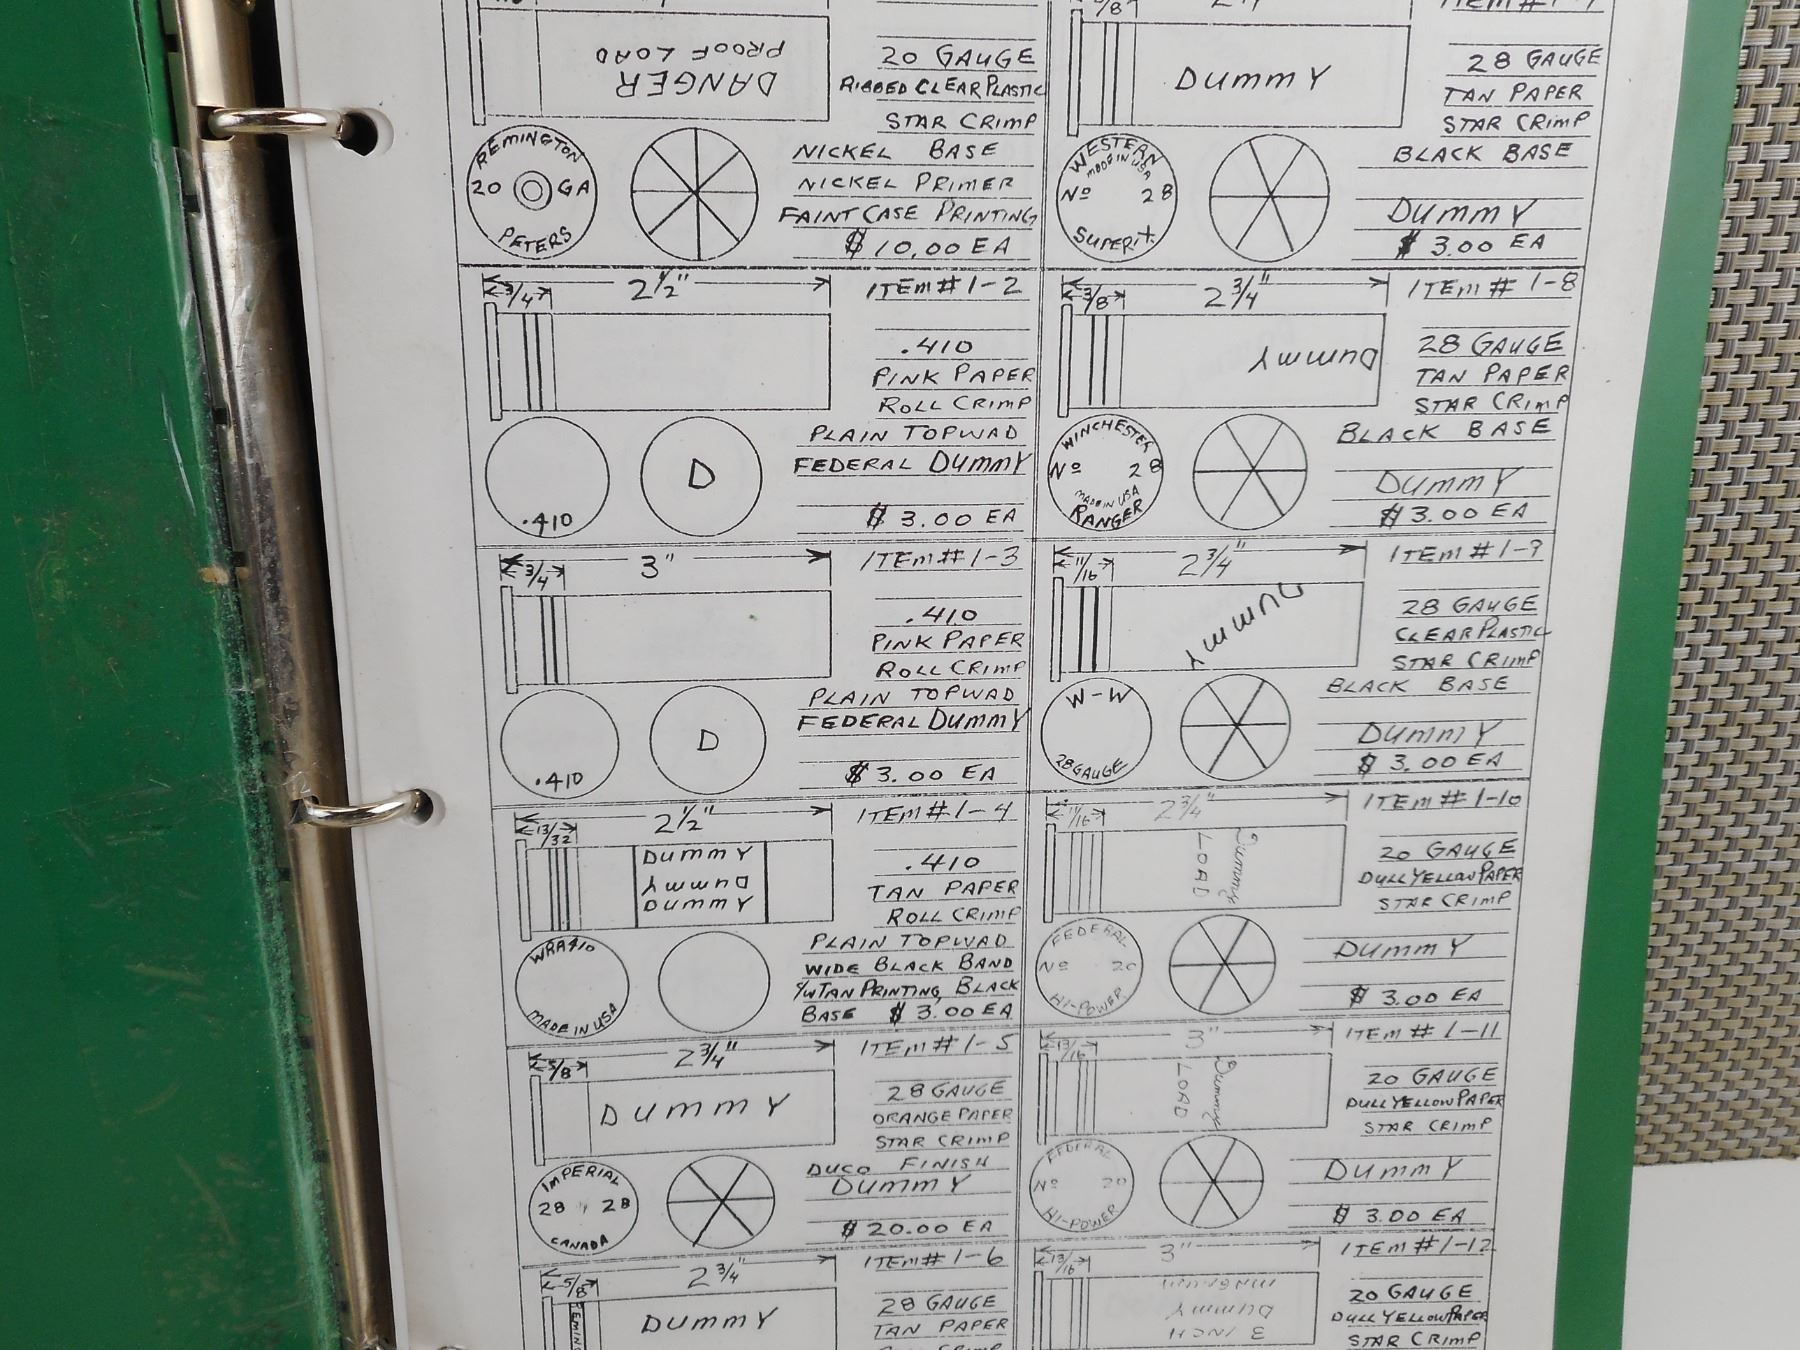 DANGER
PROOF LOAD
20 GAUGE
RIBBED CLEAR PLASTIC
STAR CRIMP
REMINGTON
20 GA
PETERS
NICKEL BASE
NICKEL PRIMER
FAINT CASE PRINTING
$10.00 EA
3/4
2 1/2"
ITEM# 1-2
.410
PINK PAPER
ROLL CRIMP
.410
D
PLAIN TOPWAD
FEDERAL DUMMY
$ 3.00 EA
3/4
3"
ITEM# 1-3
.410
PINK PAPER
ROLL CRIMP
.410
D
PLAIN TOPWAD
FEDERAL DUMMY
$ 3.00 EA
13/32
2 1/2"
ITEM# 1-4
DUMMY
DUMMY
DUMMY
.410
TAN PAPER
ROLL CRIMP
WRA410
MADE IN USA
PLAIN TOPWAD
WIDE BLACK BAND
/WTAN PRINTING, BLACK
BASE $ 3.00 EA
5/8
2 3/4"
ITEM# 1-5
DUMMY
28 GAUGE
ORANGE PAPER
STAR CRIMP
IMPERIAL
28 28
CANADA
DUCO FINISH
DUMMY
$20.00 EA
5/8
2 3/4"
ITEM# 1-6
DUMMY
28 GAUGE
TAN PAPER
DUMMY
28 GAUGE
TAN PAPER
STAR CRIMP
WESTERN
MADE IN USA
No 28
SUPER-X
BLACK BASE
DUMMY
$ 3.00 EA
3/8
2 3/4"
ITEM# 1-8
DUMMY
28 GAUGE
TAN PAPER
STAR CRIMP
WINCHESTER
No 28
MADE IN USA
RANGER
BLACK BASE
DUMMY
$3.00 EA
11/16
2 3/4"
ITEM# 1-9
DUMMY
28 GAUGE
CLEAR PLASTIC
STAR CRIMP
W-W
28 GAUGE
BLACK BASE
DUMMY
$ 3.00 EA
11/16
2 3/4"
ITEM# 1-10
Dummy
LOAD
20 GAUGE
DULL YELLOW PAPER
STAR CRIMP
FEDERAL
No 20
HI-POWER
DUMMY
$ 3.00 EA
13/16
3"
ITEM# 1-11
Dummy
LOAD
20 GAUGE
DULL YELLOW PAPER
STAR CRIMP
FEDERAL
No 20
HI-POWER
DUMMY
$ 3.00 EA
13/16
3"
ITEM# 1-12
3 INCH
DUMMY
MAGNUM
20 GAUGE
DULL YELLOW PAPER
STAR CRIMP